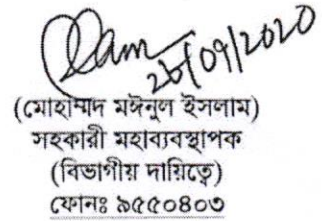 26/07/2020
(মোহাম্মদ মঈনুল ইসলাম)
সহকারী মহাব্যবস্থাপক
(বিভাগীয় দায়িত্বে)
ফোনঃ ৯৫৫০৪০৩